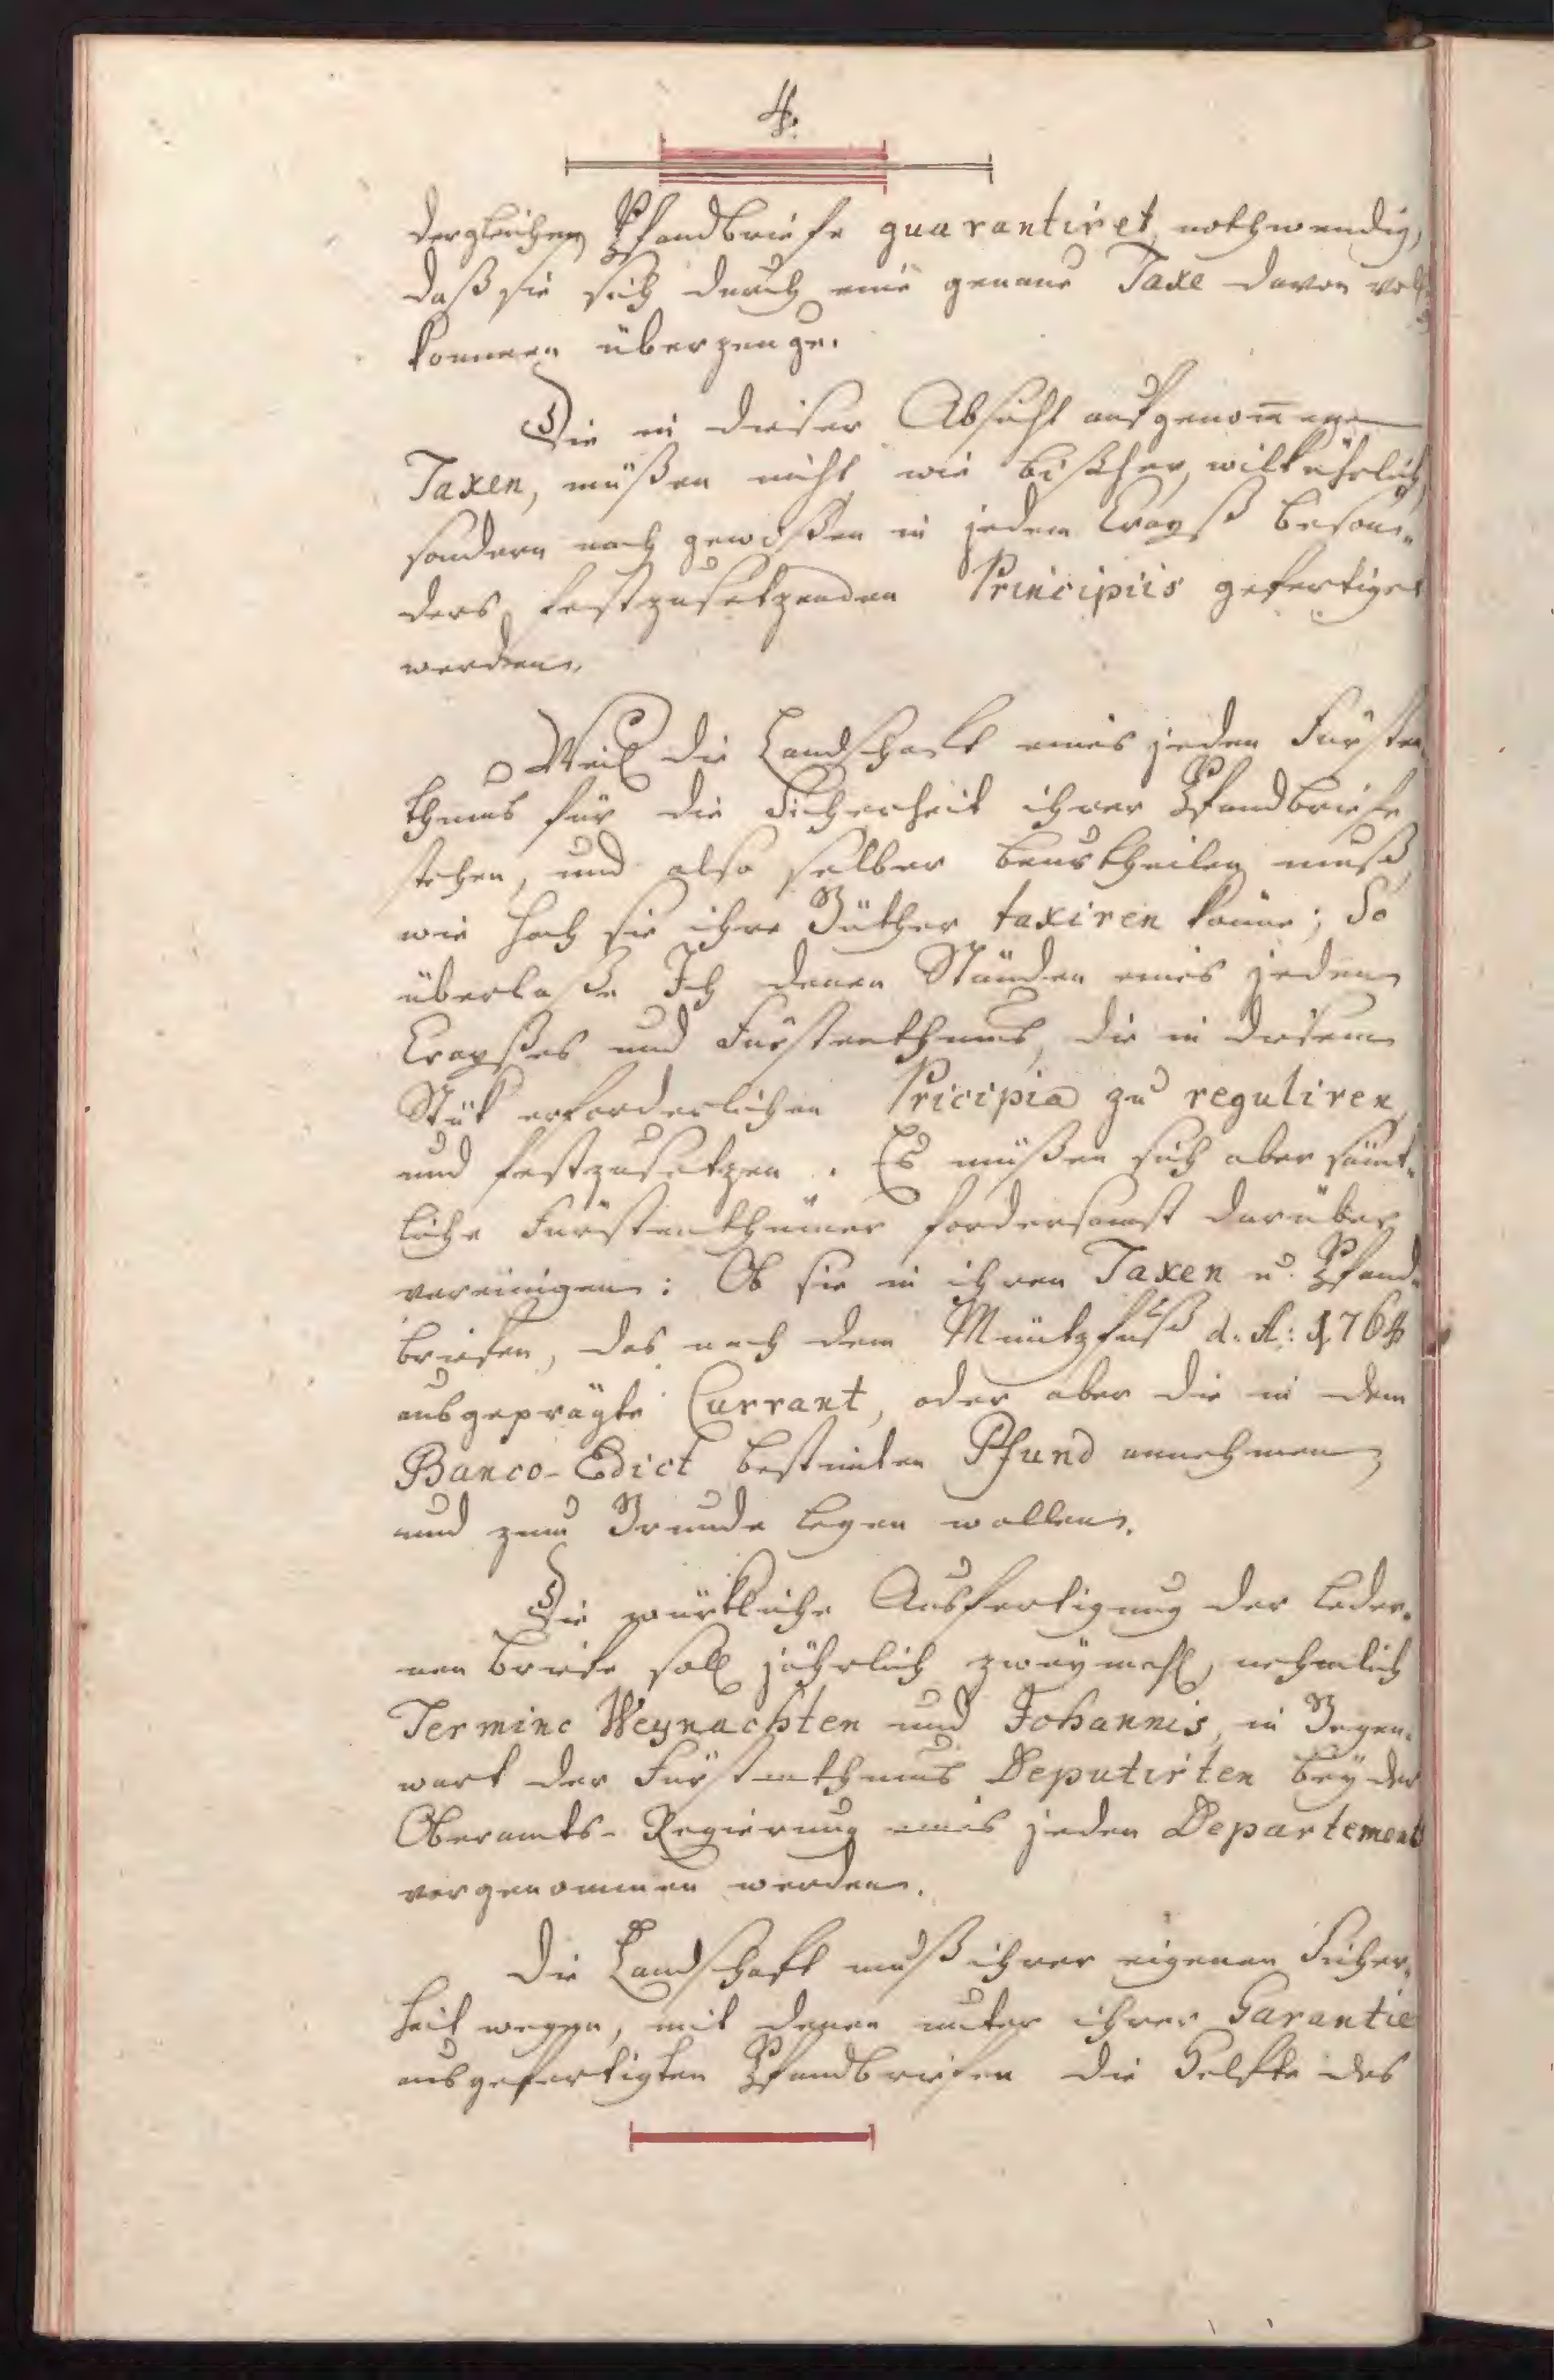 4.
dergleichen Pfandbriefe guarantiret, nothwendig,
daß sie sich durch eine genaue Taxe davon voll-
kommen überzeuge.
Die in dieser Absicht aufgenom̄enen
Taxen, müßen nicht wie bißher, willkührlich,
sondern nach gewißen in jedem Crayß beson„
ders festzusetzenden Principiis gefertiget
werden.
Weil die Landschaft eines jeden Fürsten-
thums für die Sicherheit ihrer Pfandbriefe
stehen, und also selber beurtheilen muß,
wie hoch sie ihre Güther taxiren könne; So
überlaße Ich denen Ständen eines jeden
Crayßes und Fürstenthums, die in diesem
Stük erforderlichen Pricipia zu reguliren,
und festzusetzen. Es müßen sich aber sämt„
liche Fürstenthümer fordersamst darüber
vereinigen: Ob sie in ihren Taxen u. Pfand„
briefen, das nach dem Müntzfuß d. A: 1764
ausgeprägte Currant, oder aber die in dem
Banco-Edict bestimten Pfund annehmen,
und zum Grunde legen wollen.
Die würkliche Ausfertigung der leder„
nen Briefe soll jährlich zweymahl, nehmlich
Termino Weynachten und Johannis, in Gegen„
wart der Fürstenthums Deputirten bey der
Oberamts-Regierung eines jeden Departements
vorgenommen werden.
Die Landschaft muß ihrer eigenen Sicher„
heit wegen, mit denen unter ihrer Garantie
ausgefertigten Pfandbriefen die Helfte des